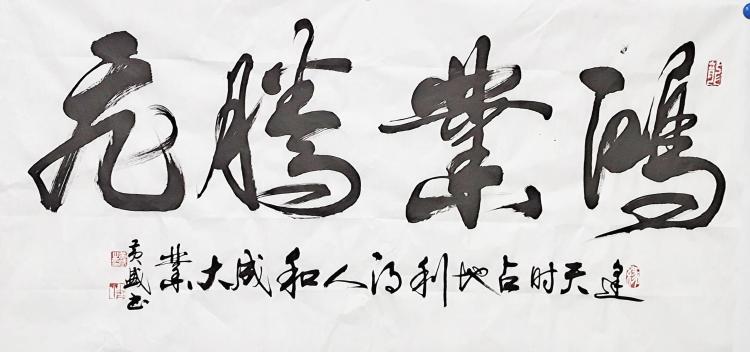 鴻業騰飛
逢天时占地利得人和成大業
黄盛书